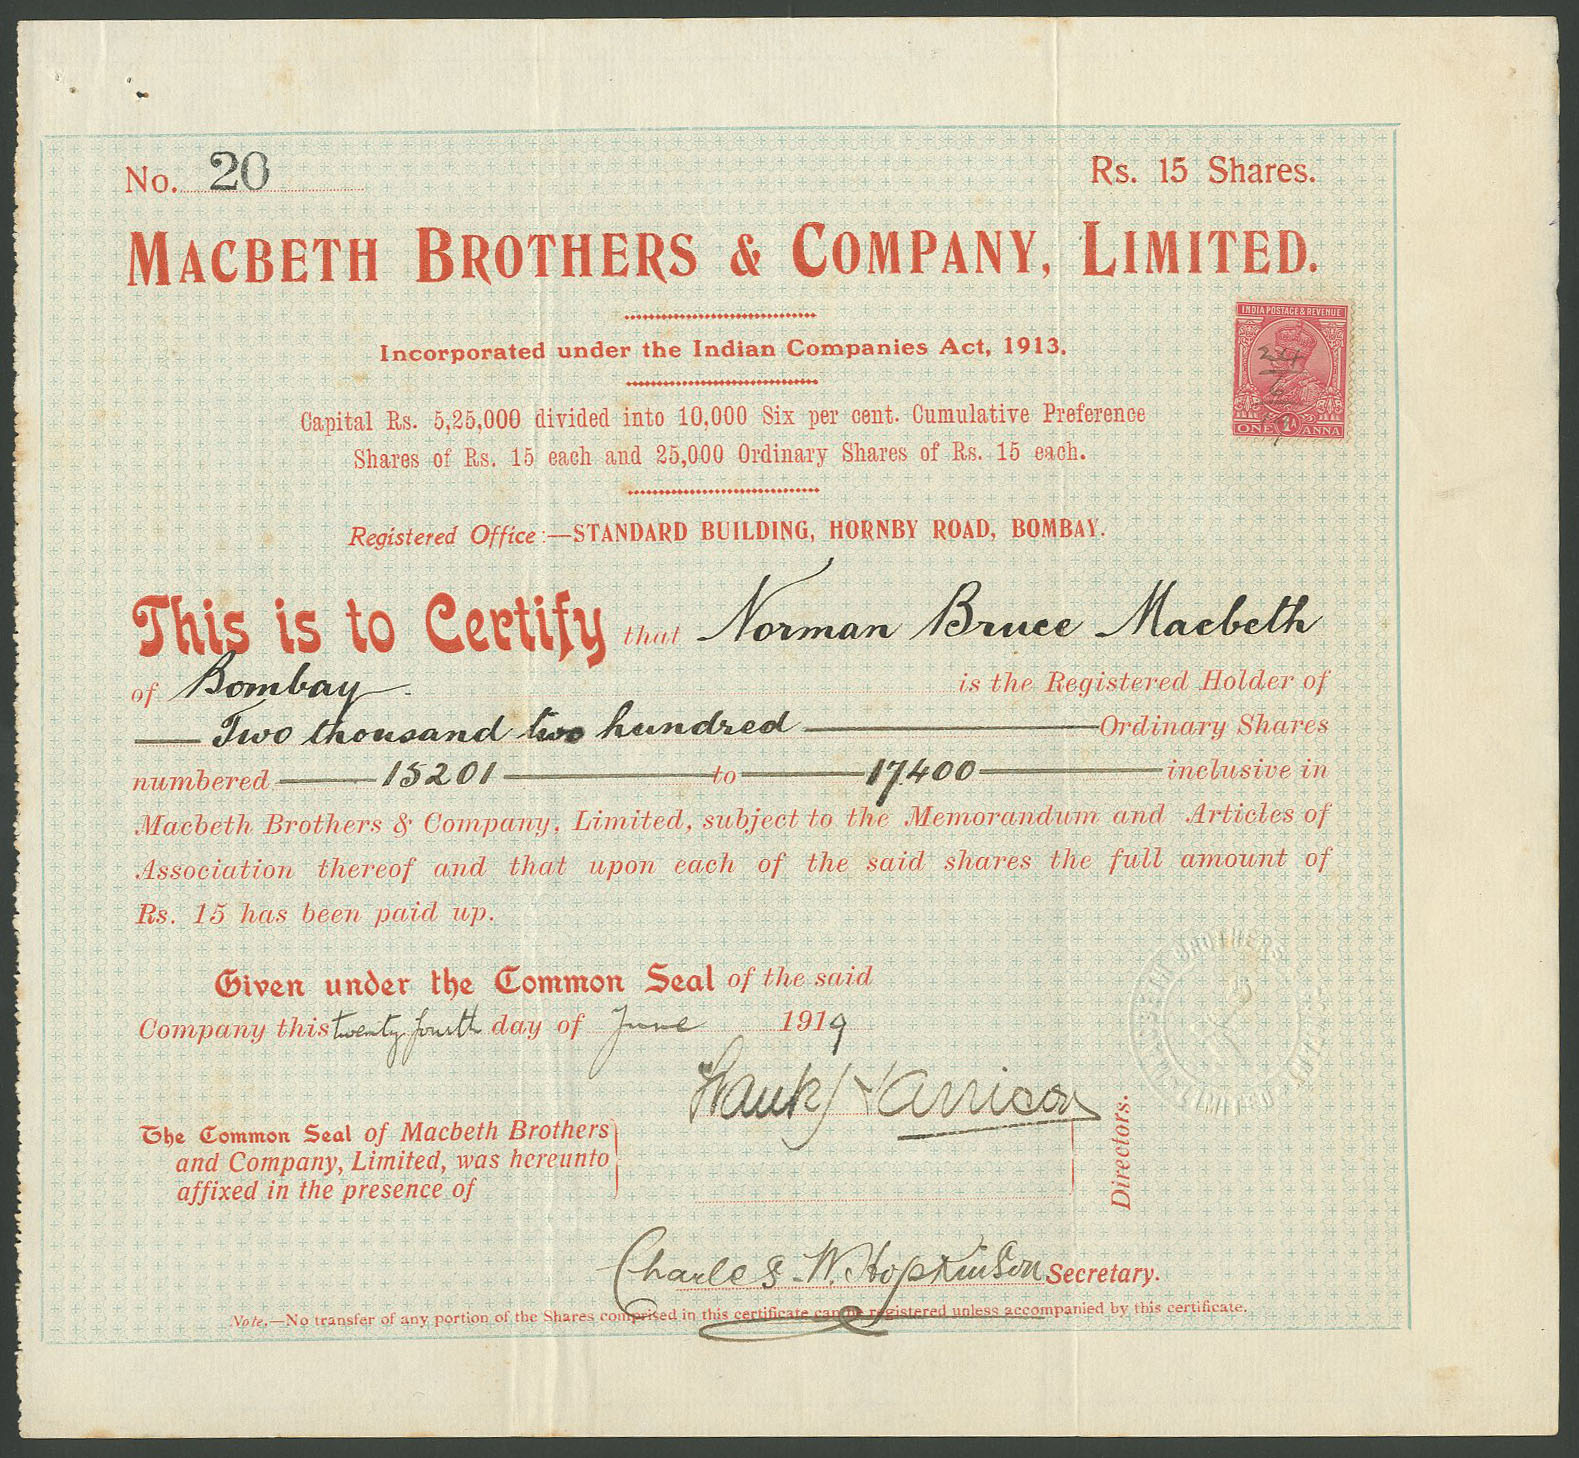 No. 20
Rs. 15 Shares.
MACBETH BROTHERS & COMPANY, LIMITED.
INDIA POSTAGE & REVENUE
24
6
ONE 1A ANNA
Incorporated under the Indian Companies Act, 1913.
Capital Rs. 5,25,000 divided into 10,000 Six per cent. Cumulative Preference
Shares of Rs. 15 each and 25,000 Ordinary Shares of Rs. 15 each.
Registered Office:—STANDARD BUILDING, HORNBY ROAD, BOMBAY.
This is to Certify that Norman Bruce Macbeth
of Bombay. is the Registered Holder of
Two thousand two hundred Ordinary Shares
numbered 15201 to 17400 inclusive in
Macbeth Brothers & Company, Limited, subject to the Memorandum and Articles of
Association thereof and that upon each of the said shares the full amount of
Rs. 15 has been paid up.
Given under the Common Seal of the said
Company this twenty fourth day of June 1919
MACBETH BROTHERS & COMPANY LIMITED
Frank Harrison
The Common Seal of Macbeth Brothers
and Company, Limited, was hereunto
affixed in the presence of
Directors.
Charles W. Hopkinson Secretary.
Note.—No transfer of any portion of the Shares comprised in this certificate can be registered unless accompanied by this certificate.